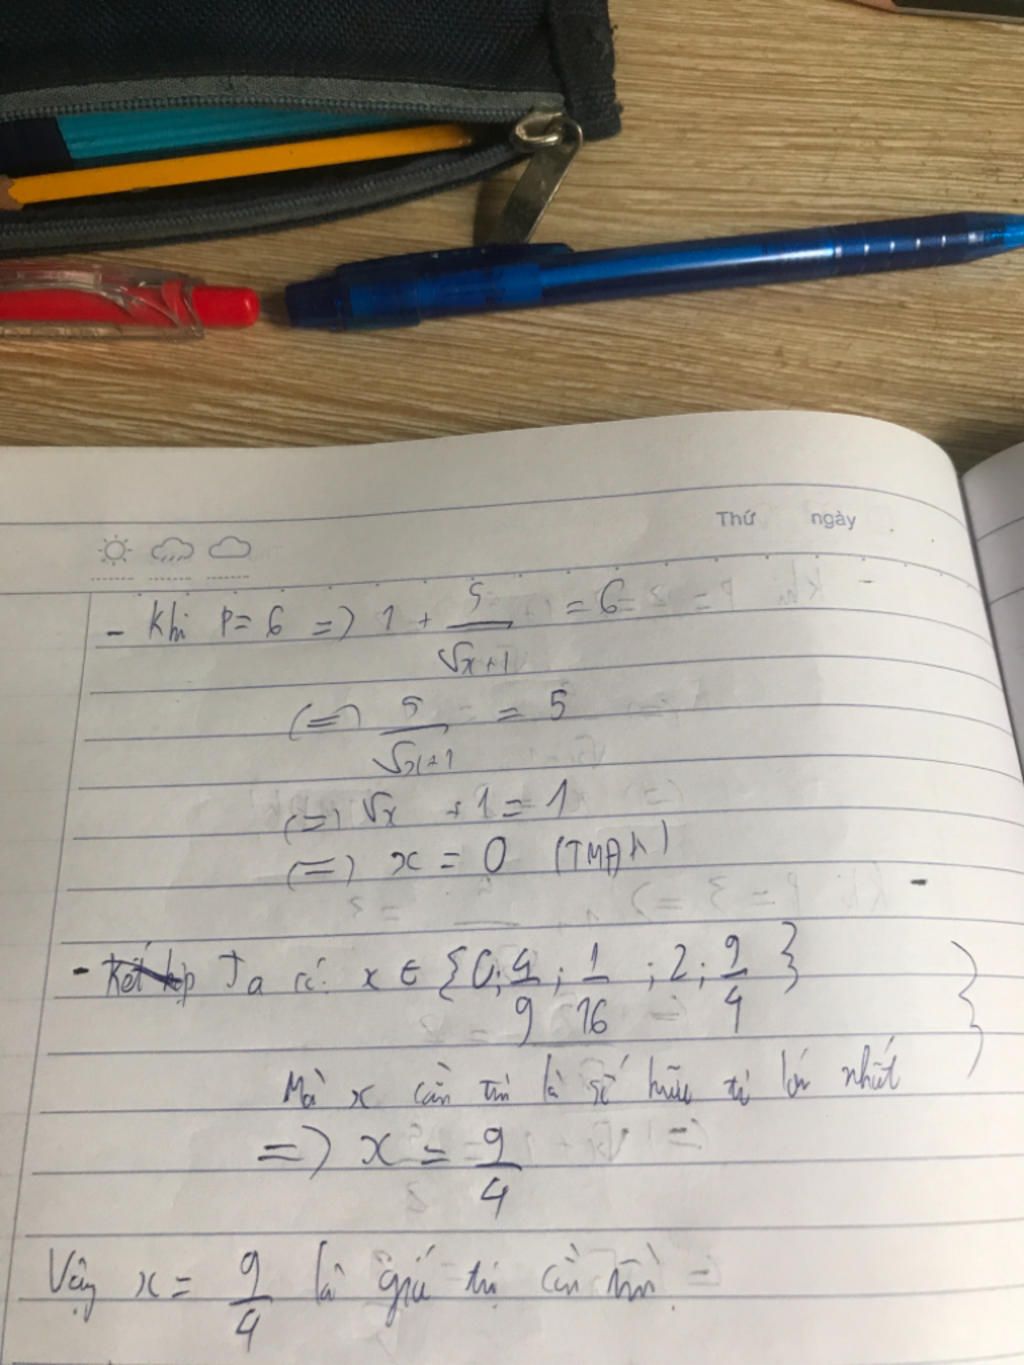 Thứ ngày
- Khi P = 6 => 1 + 5/√x+1 = 6
(=) 5/√x+1 = 5
(=) √x + 1 = 1
(=) x = 0 (TMĐK)
- Kết hợp Ta có: x ∈ {0; 4/9; 1/16; 2; 9/4}
Mà x cần tìm là số hữu tỉ lớn nhất
=> x = 9/4
Vậy x = 9/4 là giá trị cần tìm